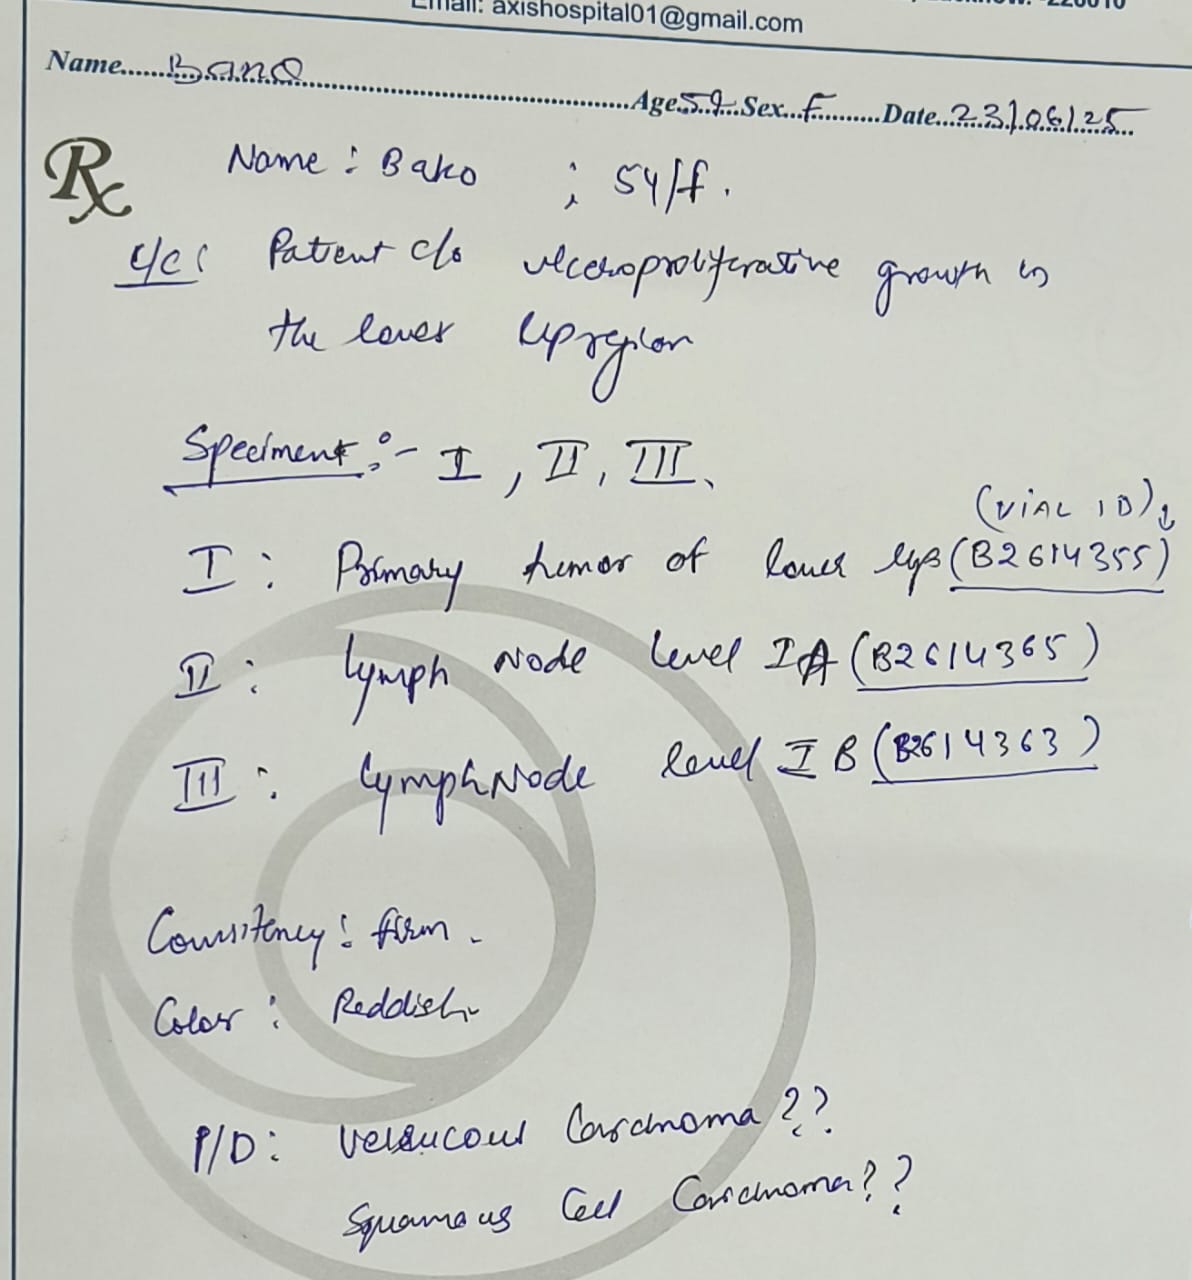 Email: axishospital01@gmail.com
Name......Bano......Age 59 Sex...F......Date..23/06/25
Rx Name : Bako ; 54/f.
C/C: Patient c/o ulceroproliferative growth in
the lower lip region
Speciment :- I, II, III.
(VIAL ID)↓
I : Primary tumor of lower lips (B2614355)
II : Lymph Node level IA (B2614365)
III : Lymph Node level I B (B2614363)
Consitency : firm.
Color : Reddish.
P/D: Verrucous Carcinoma ??
Squamous Cell Carcinoma??